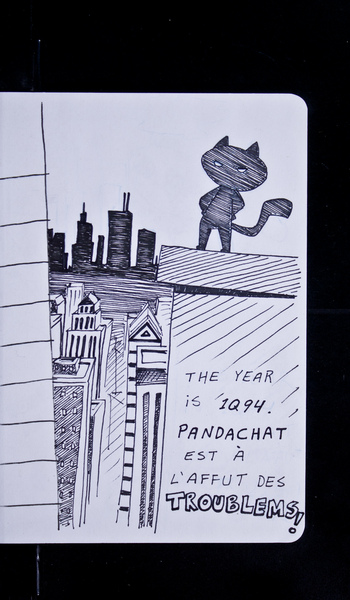 THE YEAR
is 1Q94.
PANDACHAT
EST À
L'AFFUT DES
TROUBLEMS!